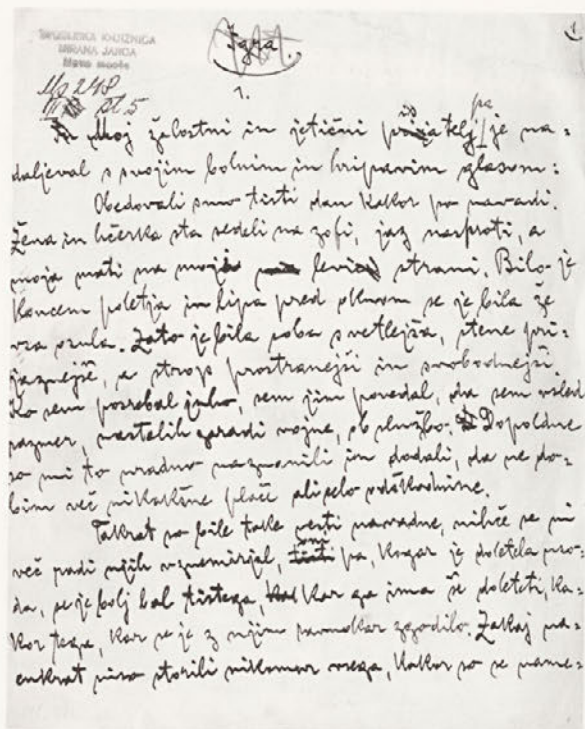 1
Igra.
ŠTUDIJSKA KNJIŽNICA
MIRANA JARCA
Novo mesto
Ms 248
1.
Moj žalostni in jetični prijatelj pa je na=
daljeval s svojim bolnim in hripavim glasom:
Obedovali smo tisti dan kakor po navadi.
Žena in hčerka sta sedeli na zofi, jaz nasproti, a
moja mati na moji levi strani. Bilo je
koncem poletja in lipa pred oknom se je bila že
vsa osula. Zato je bila soba svetlejša, stene pri=
jaznejše, a strop prostranejši in svobodnejši.
Ko sem posrebal juho, sem jim povedal, da sem vsled
razmer, nastalih zaradi vojne, ob službo. Dopoldne
so mi to uradno naznanili in dodali, da ne do=
bim več nikakšne plače ali celo odškodnine.
Takrat so bile take vesti navadne, nihče se ni
več radi njih vznemirjal, oni pa, kogar je doletela uso=
da, se je bolj bal tistega, kar ga ima še doleteti, ka=
kor tega, kar se je z njim ravnokar zgodilo. Zakaj na=
enkrat niso storili nikomur vsega, kakor so se name=